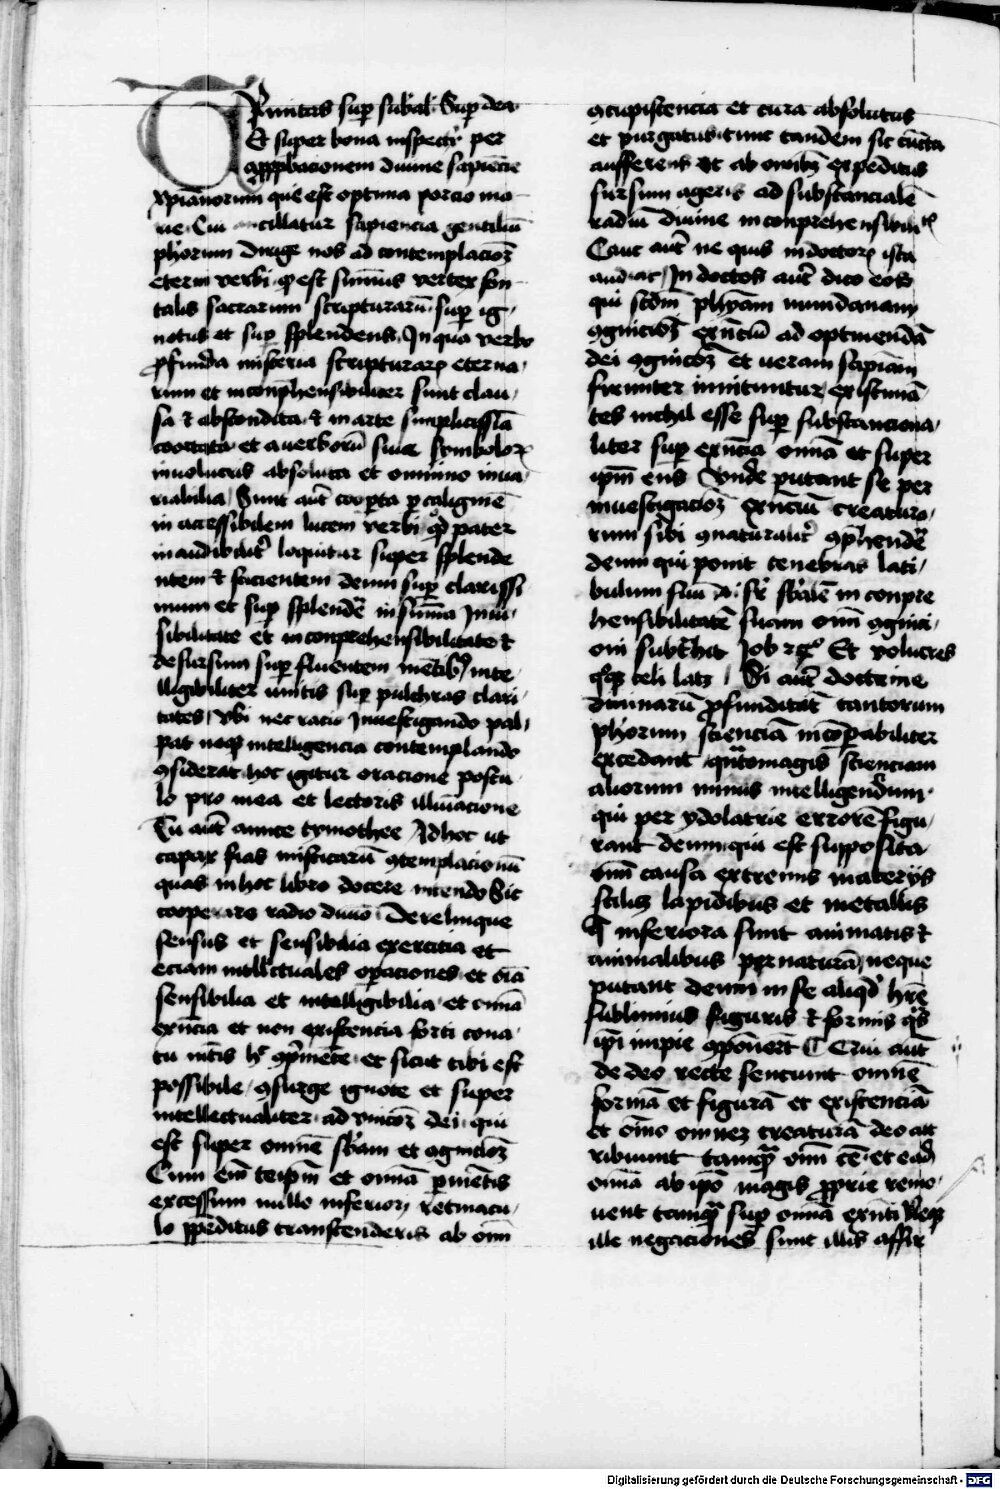 Trinitas sup̄ sub̄al· Sup̄ dea
Et super bona inspect̉x per
app̱bacionem diuine sapiēcie
xp̄ianorum que est optima porcio ma
rie· Cui ancillatur sapiencia gentiliū
ph̄orum Dirige nos ad contemplacioꝫ
eterni verbi· qͥ est sūmus vertex fon
talis sacrarum scripturarū· sup̄ ig·
notus et sup̄ splendens· In qua verbo
ꝓfunda misteria scripturaꝝ eterna·
rum et inconp̄hensibiliter sunt clau·
sa ⁊ abscondita· ⁊ in arte simplicissīa
et a verborū siue simboloꝝ
inuolucris absoluta et omnino inua·
riabilia· Sunt aūt coop̱ta ꝑ caliginē
in accessibilem lucem verbi qd̓ pater
in audibilit̉ loquitur super splende
ntem ⁊ facientem deum sup̄ clarissi
mum et sup̄ splendē in sūma Inui·
sibilitate et inconprehensibilitate ⁊
desursum sup̄ fluentem mētib; inte·
lligibiliter unitis sup̄ pulchras clari·
tates· Vbi nec racio Inuestigando pal·
pat neqꝫ intelligencia contemplando
ꝯsiderat· hoc igitur oracione postu·
lo pro mea et lectoris illūiacione
Tu aūt amice tymothee Ad hoc ut
capax fias misticarū ꝯtemplacionū
quas in hoc libro docere intendo Sic
cooperare radio diuio· Derelinque
sensus et sensibilia exercicia et
eciam intll̄ectuales oꝑaciones· et oīa
sensibilia et intelligibilia· et omīa
exn̄cia et non existencia forti cona·
tu mētis hͦ ꝯp̄mēte· et sicut tibi est
possibile· ꝯsurge ignote et super
intellectualiter· ad vnicoꝫ dei· qui
est super omnē sb̄am et ꝯgnicioꝫ
Cum eīm teip̄m et omīa ꝑ mētis
excessum nullo inferiori retinacu·
lo p̱peditus transcenderis ab omī
ꝯcupiscencia et cura absolutus
et purgatus· tunc tandem sic cūcta
aufferens et ab omīb; expeditus
sursum ageris ad substancialē
radiū diuine inconprehensibilitͥs
Caue aūt ne quis indoctoꝝ ista
audiat· Indoctos aūt dico eos
qui scd̄m ph̄yām mundanam
ꝯgnicioꝫ exn̄ciū ad optinendā
dei ꝯgnicōꝫ et veram sapīam
firmiter innituntur existimā·
tes nichil esse sup̄ substanciona·
liter sup̄ exn̄cia omīa et super
ip̄m ens Vnde putant se per
inuestigacioꝫ exn̄ciū creatura·
rum sibi ꝯnaturalit̉ ꝯp̄hendē
deum qui ponit tenebras lati·
bulum suū ·i· sͥ sb̄ialē inconpre
hensibilitatē suam omī ꝯgnici·
oni subt̓hit Job 28 Et volucres
qͦqꝫ celi latꝫ· Si aūt doctrine
diuinarū ꝓfunditāt̄ tantorum
ph̄orum scienciā incōꝑabiliter
excedant· quātomagis scienciam
aliorum minus intelligencium·
qui per ydolatrie errorē figu·
rant deum· qui est sup̱posita
omī causa extremis materijs
scilicꝫ lapidibus et metallis
¶ inferiora sunt animatis ⁊
animalibus per naturā· neque
putant deum in se aliqd̓ hr̄e
sublimius figuris ⁊ formis qͣs
ip̄i impie ꝯponūt ¶ Cum aūt
de deo recte senciunt omnē
formā et figurā et existenciā
et omō omneꝫ creaturā deo att
ribuunt tamqͣ omī cē· et eadē
omīa ab ip̄o magis ꝓprie remo·
uent tamqͣ sup̄ omīa exn̄ti Neqꝫ
ille negaciones sunt illis affir
Digitalisierung gefördert durch die Deutsche Forschungsgemeinschaft - DFG